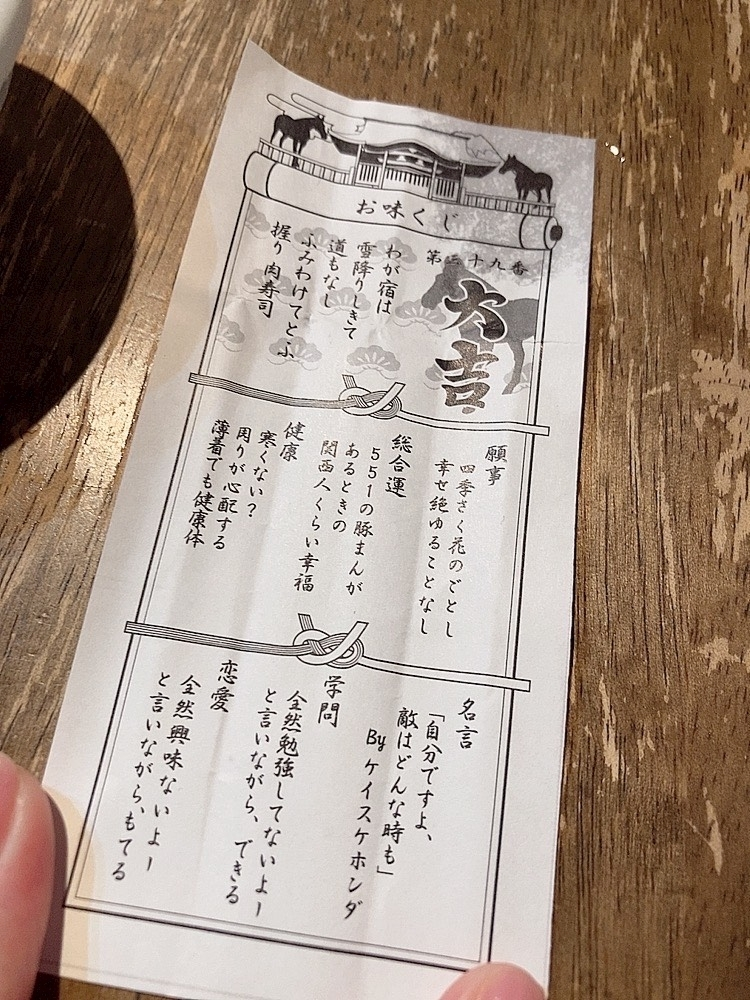 お味くじ
第三十九番
大吉
わが宿は
雪降りしきて
道もなし
ふみわけてとふ
握り肉寿司
願事
四季さく花のごとし
幸せ絶ゆることなし
総合運
551の豚まんが
あるときの
関西人くらい幸福
健康
寒くない?
周りが心配する
薄着でも健康体
名言
「自分ですよ、
敵はどんな時も」
By ケイスケホンダ
学問
全然勉強してないよー
と言いながら、できる
恋愛
全然興味ないよー
と言いながら、もてる